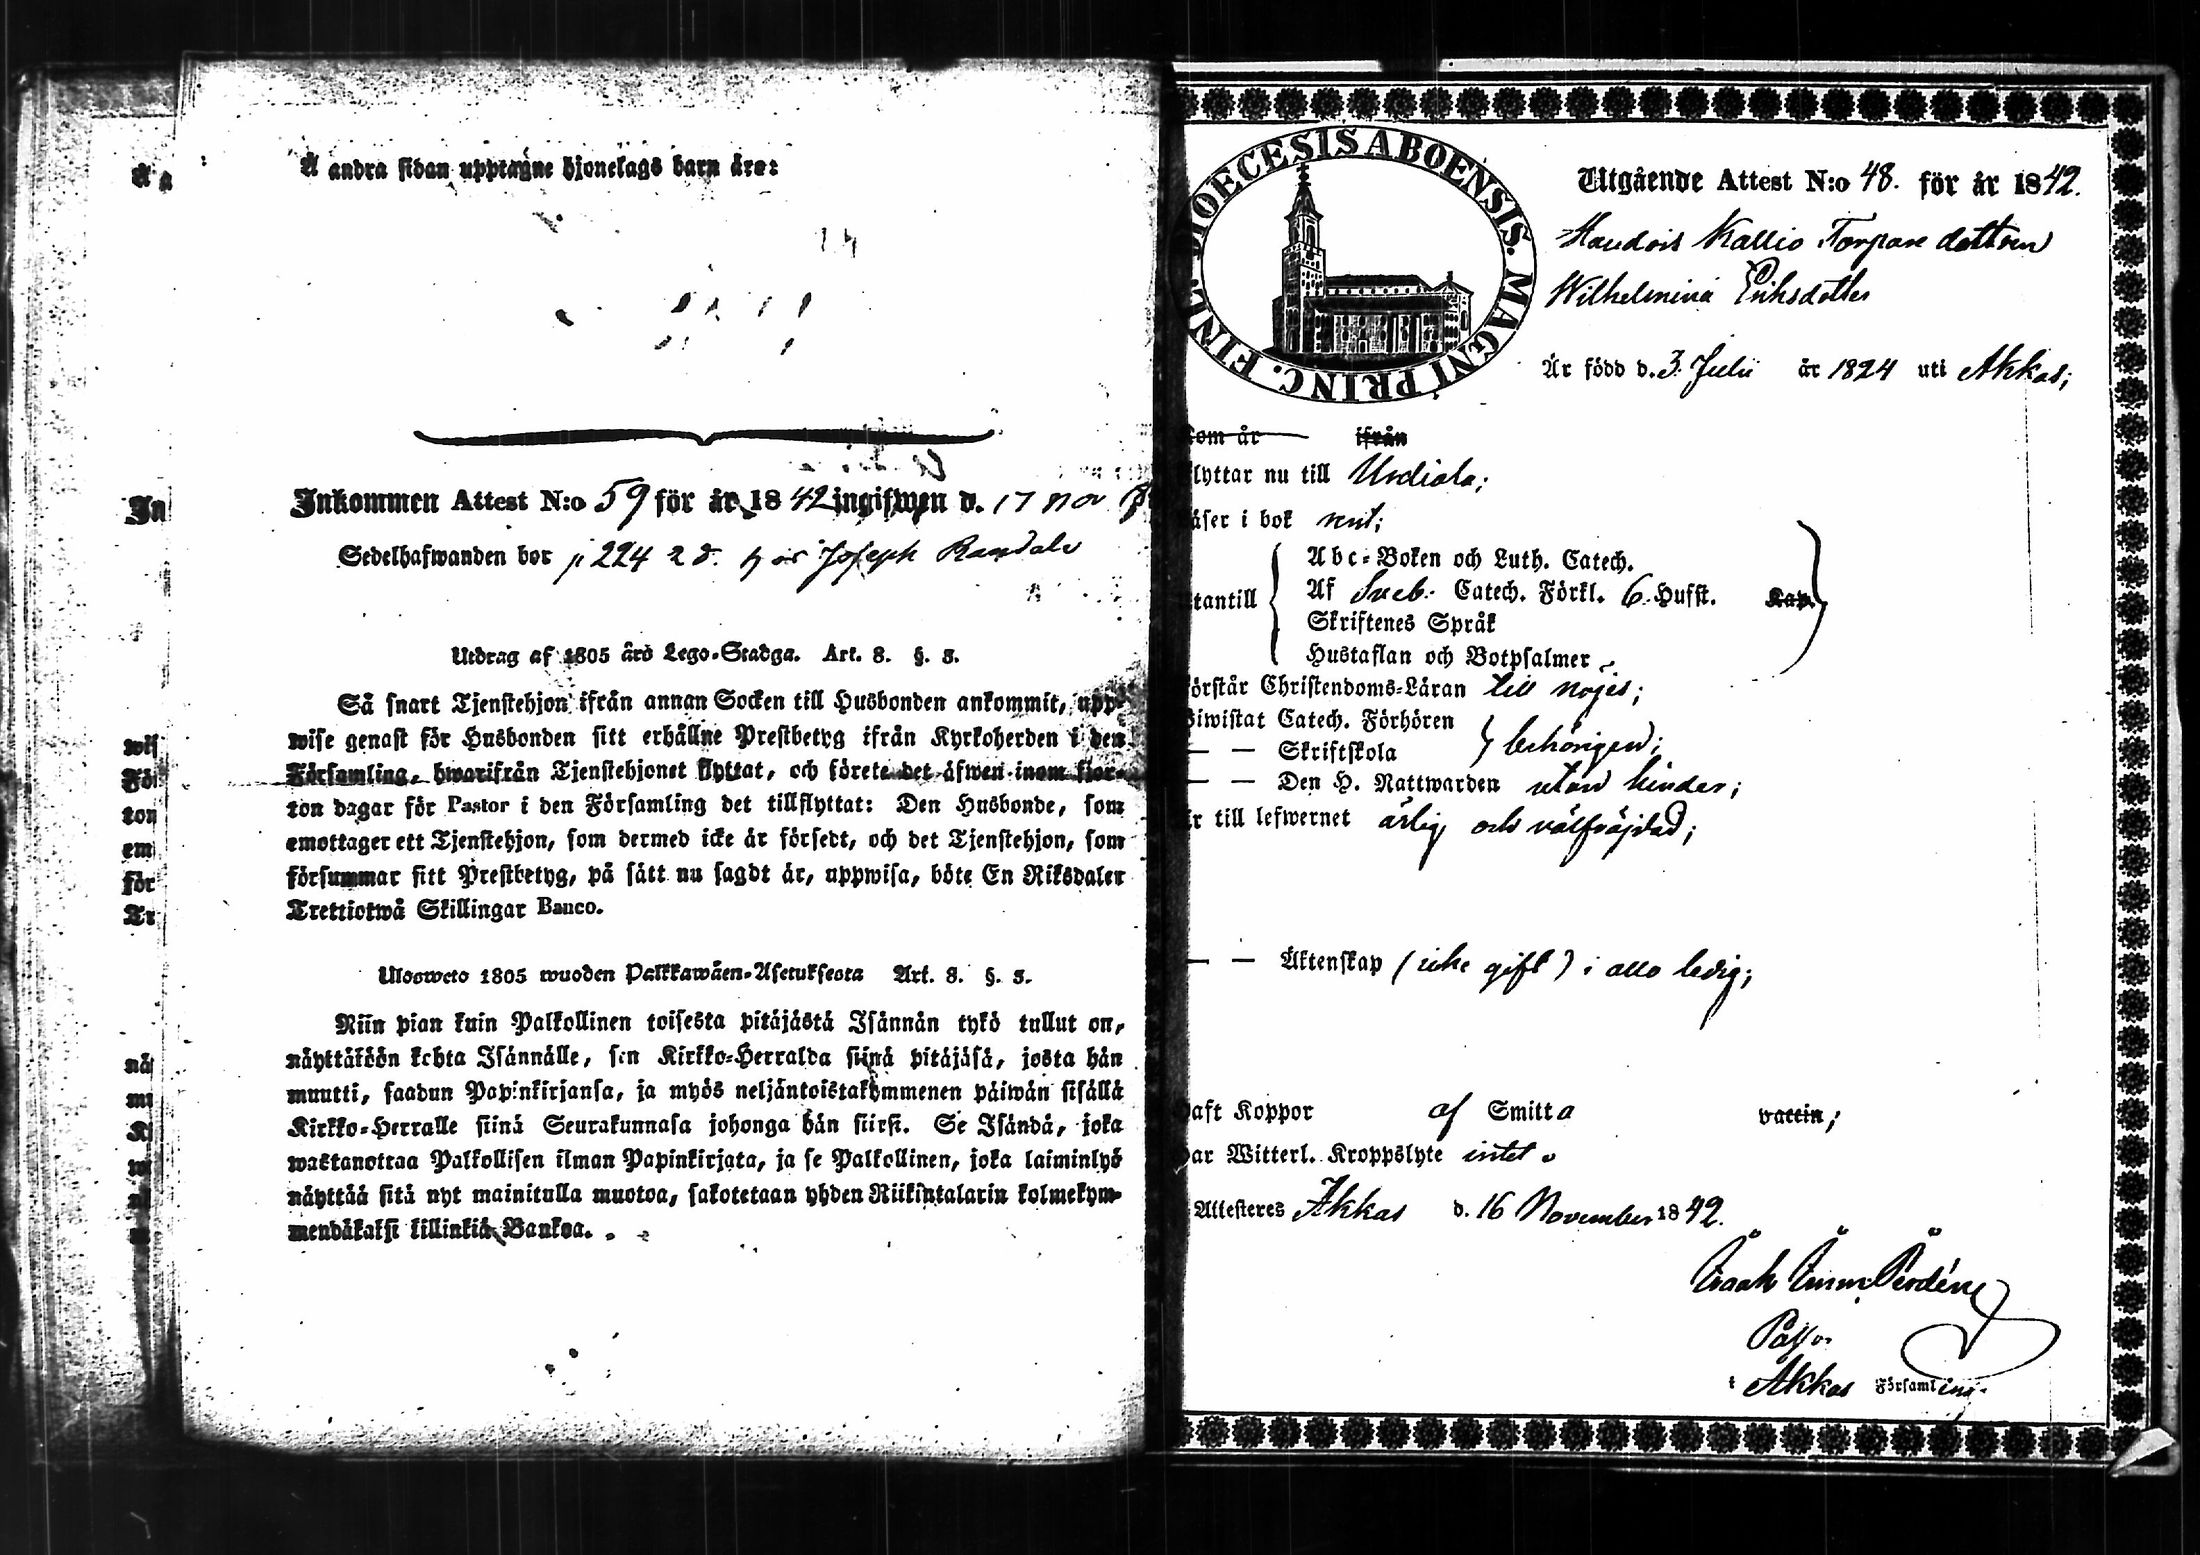 Å andra sidan upptagne hjonelags barn äro:
Inkommen Attest N:o 59 för år 1842 ingifwen d. 17 Nov
Sedelhafwanden bor p 224 2 d. hos Joseph
Utdrag af 1805 års Lego-Stadga. Art. 8. §. 3.
Så snart Tjenstehjon ifrån annan Socken till Husbonden ankommit, upp-
wise genast för Husbonden sitt erhållne Prestbetyg ifrån Kyrkoherden i den
Församling, hwarifrån Tjenstehjonet flyttat, och förete det äfwen inom fjor-
ton dagar för Pastor i den Församling det tillflyttat: Den Husbonde, som
emottager ett Tjenstehjon, som dermed icke är försedt, och det Tjenstehjon, som
försummar sitt Prestbetyg, på sätt nu sagdt är, uppwisa, böte En Riksdaler
Trettiotwå Skillingar Banco.
Ulosweto 1805 wuoden Palkkawäen-Asetuksesta Art. 8. §. 3.
Niin pian kuin Palkollinen toisesta pitäjästä Isännän tykö tullut on,
näyttäköön kohta Isännälle, sen Kirkko-Herralda siinä pitäjäsä, josta hän
muutti, saadun Papinkirjansa, ja myös neljäntoistakymmenen päiwän sisällä
Kirkko-Herralle siinä Seurakunnasa johonga hän siirsi. Se Isändä, joka
wastanottaa Palkollisen ilman Papinkirjata, ja se Palkollinen, joka laiminlyö
näyttää sitä nyt mainitulla muotoa, sakotetaan yhden Riikintalarin kolmekym-
mendäkaksi killinkiä Bankoa.
FINL. DIOECESIS ABOENSIS. MAGNI PRINC.
Utgående Attest N:o 48. för år 1842.
Kallio Torpare dottren
Wilhelmina Eriksdotter
Är född d. 3 Julii år 1824 uti Akkas;
kom år ifrån
flyttar nu till Urdiala;
läser i bok rent;
utantill
Abc-Boken och Luth. Catech.
Af Sveb. Catech. Förkl. 6 Hufst. Kap.
Skriftenes Språk
Hustaflan och Botpsalmer
förstår Christendoms-Läran till nöjes;
biwistat Catech. Förhören
— — Skriftskola behörigen;
— — Den H. Nattwarden utan hinder;
är till lefwernet ärlig och välfräjdad;
— — Äktenskap (icke gift) i allo ledig;
haft Koppor af Smitta vaccin;
har Witterl. Kroppslyte intet.
Attesteres Akkas d. 16 November 1842.
Pastor
i Akkas Församling.